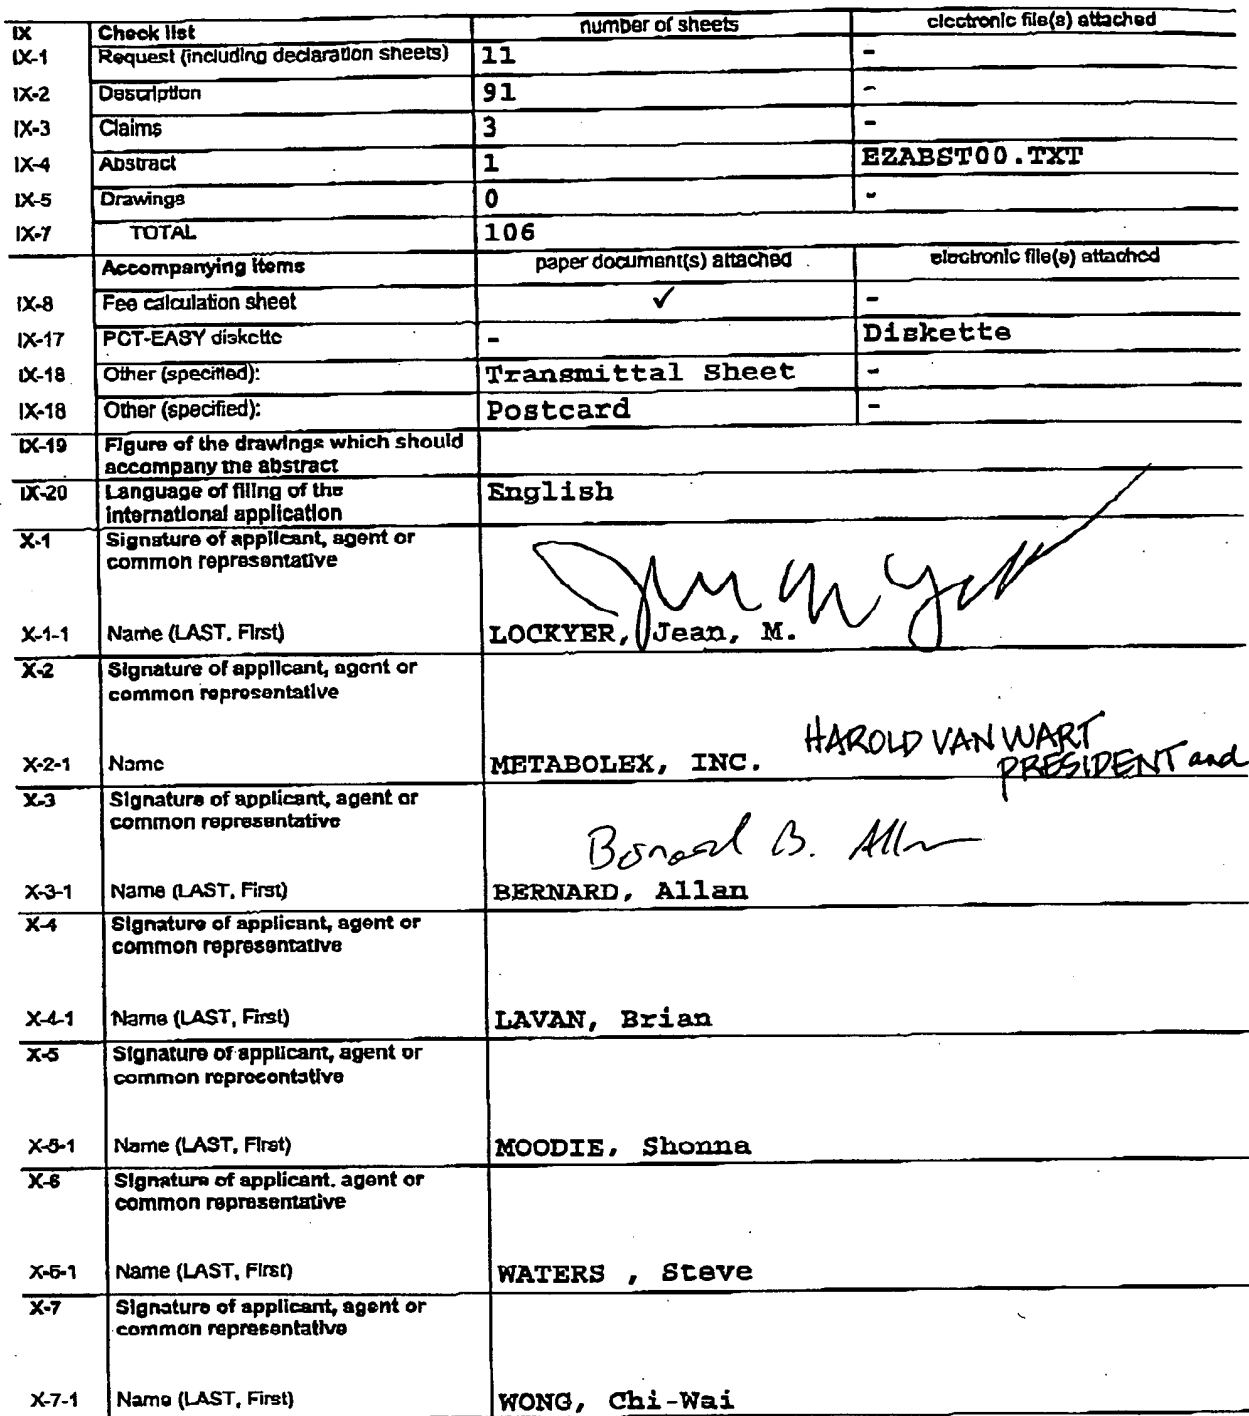 IX Check list number of sheets electronic file(s) attached
IX-1 Request (including declaration sheets) 11 -
IX-2 Description 91 -
IX-3 Claims 3 -
IX-4 Abstract 1 EZABST00.TXT
IX-5 Drawings 0 -
IX-7 TOTAL 106
Accompanying items paper document(s) attached electronic file(s) attached
IX-8 Fee calculation sheet ✓ -
IX-17 PCT-EASY diskette - Diskette
IX-18 Other (specified): Transmittal Sheet -
IX-18 Other (specified): Postcard -
IX-19 Figure of the drawings which should
accompany the abstract
IX-20 Language of filing of the English
international application
X-1 Signature of applicant, agent or
common representative
X-1-1 Name (LAST, First) LOCKYER, Jean, M.
X-2 Signature of applicant, agent or
common representative
HAROLD VAN WART
X-2-1 Name METABOLEX, INC. PRESIDENT and
X-3 Signature of applicant, agent or
common representative
B. All
X-3-1 Name (LAST, First) BERNARD, Allan
X-4 Signature of applicant, agent or
common representative
X-4-1 Name (LAST, First) LAVAN, Brian
X-5 Signature of applicant, agent or
common representative
X-5-1 Name (LAST, First) MOODIE, Shonna
X-6 Signature of applicant, agent or
common representative
X-6-1 Name (LAST, First) WATERS , Steve
X-7 Signature of applicant, agent or
common representative
X-7-1 Name (LAST, First) WONG, Chi-Wai